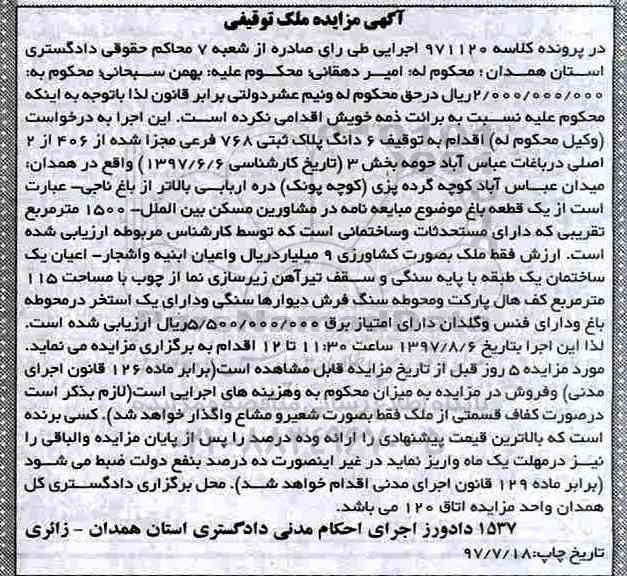 آگهی مزایده ملک توقیفی
در پرونده کلاسه ۹۷۱۱۲۰ اجرایی طی رای صادره از شعبه ۷ محاکم حقوقی دادگستری
استان همدان ؛ محکوم له: امیر دهقانی؛ محکوم علیه: بهمن سبحانی؛ محکوم به:
۲/۰۰۰/۰۰۰/۰۰۰ریال درحق محکوم له ونیم عشردولتی برابر قانون لذا باتوجه به اینکه
محکوم علیه نسبت به برائت ذمه خویش اقدامی نکرده است. این اجرا به درخواست
(وکیل محکوم له) اقدام به توقیف ۶ دانگ پلاک ثبتی ۷۶۸ فرعی مجزا شده از ۴۰۶ از ۲
اصلی درباغات عباس آباد حومه بخش ۳ (تاریخ کارشناسی ۱۳۹۷/۶/۶) واقع در همدان:
میدان عباس آباد کوچه گرده پزی (کوچه پونک) دره اربابی بالاتر از باغ ناجی- عبارت
است از یک قطعه باغ موضوع مبایعه نامه در مشاورین مسکن بین الملل- ۱۵۰۰ مترمربع
تقریبی که دارای مستحدثات وساختمانی است که توسط کارشناس مربوطه ارزیابی شده
است. ارزش فقط ملک بصورت کشاورزی ۹ میلیاردریال واعیان ابنیه واشجار- اعیان یک
ساختمان یک طبقه با پایه سنگی و سقف تیرآهن زیرسازی نما از چوب با مساحت ۱۱۵
مترمربع کف هال پارکت ومحوطه سنگ فرش دیوارها سنگی ودارای یک استخر درمحوطه
باغ ودارای فنس وگلدان دارای امتیاز برق ۵/۵۰۰/۰۰۰/۰۰۰ریال ارزیابی شده است.
لذا این اجرا بتاریخ ۱۳۹۷/۸/۶ ساعت ۱۱:۳۰ تا ۱۲ اقدام به برگزاری مزایده می نماید.
مورد مزایده ۵ روز قبل از تاریخ مزایده قابل مشاهده است(برابر ماده ۱۲۶ قانون اجرای
مدنی) وفروش در مزایده به میزان محکوم به وهزینه های اجرایی است(لازم بذکر است
درصورت کفاف قسمتی از ملک فقط بصورت شعیرو مشاع واگذار خواهد شد). کسی برنده
است که بالاترین قیمت پیشنهادی را ارائه وده درصد را پس از پایان مزایده والباقی را
نیز درمهلت یک ماه واریز نماید در غیر اینصورت ده درصد بنفع دولت ضبط می شود
(برابر ماده ۱۲۹ قانون اجرای مدنی اقدام خواهد شد). محل برگزاری دادگستری کل
همدان واحد مزایده اتاق ۱۲۰ می باشد.
۱۵۳۷ دادورز اجرای احکام مدنی دادگستری استان همدان - زائری
تاریخ چاپ:۹۷/۷/۱۸